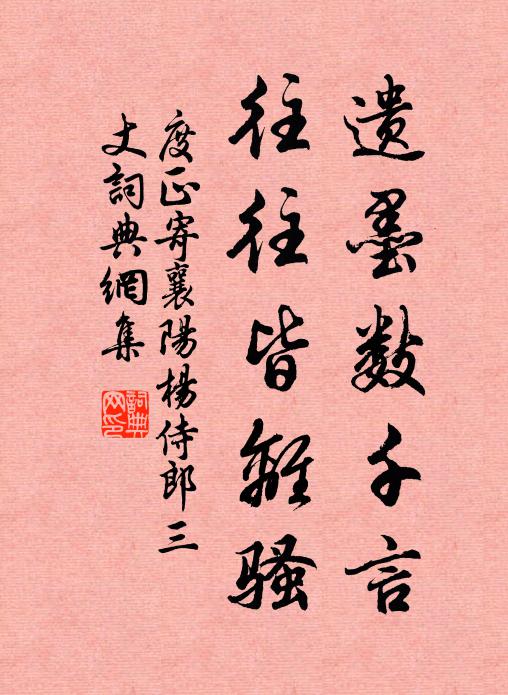 遗墨数千言
往往皆離骚
度正寄襄陽楊侍郎三
丈詞典網集
詞典
网印